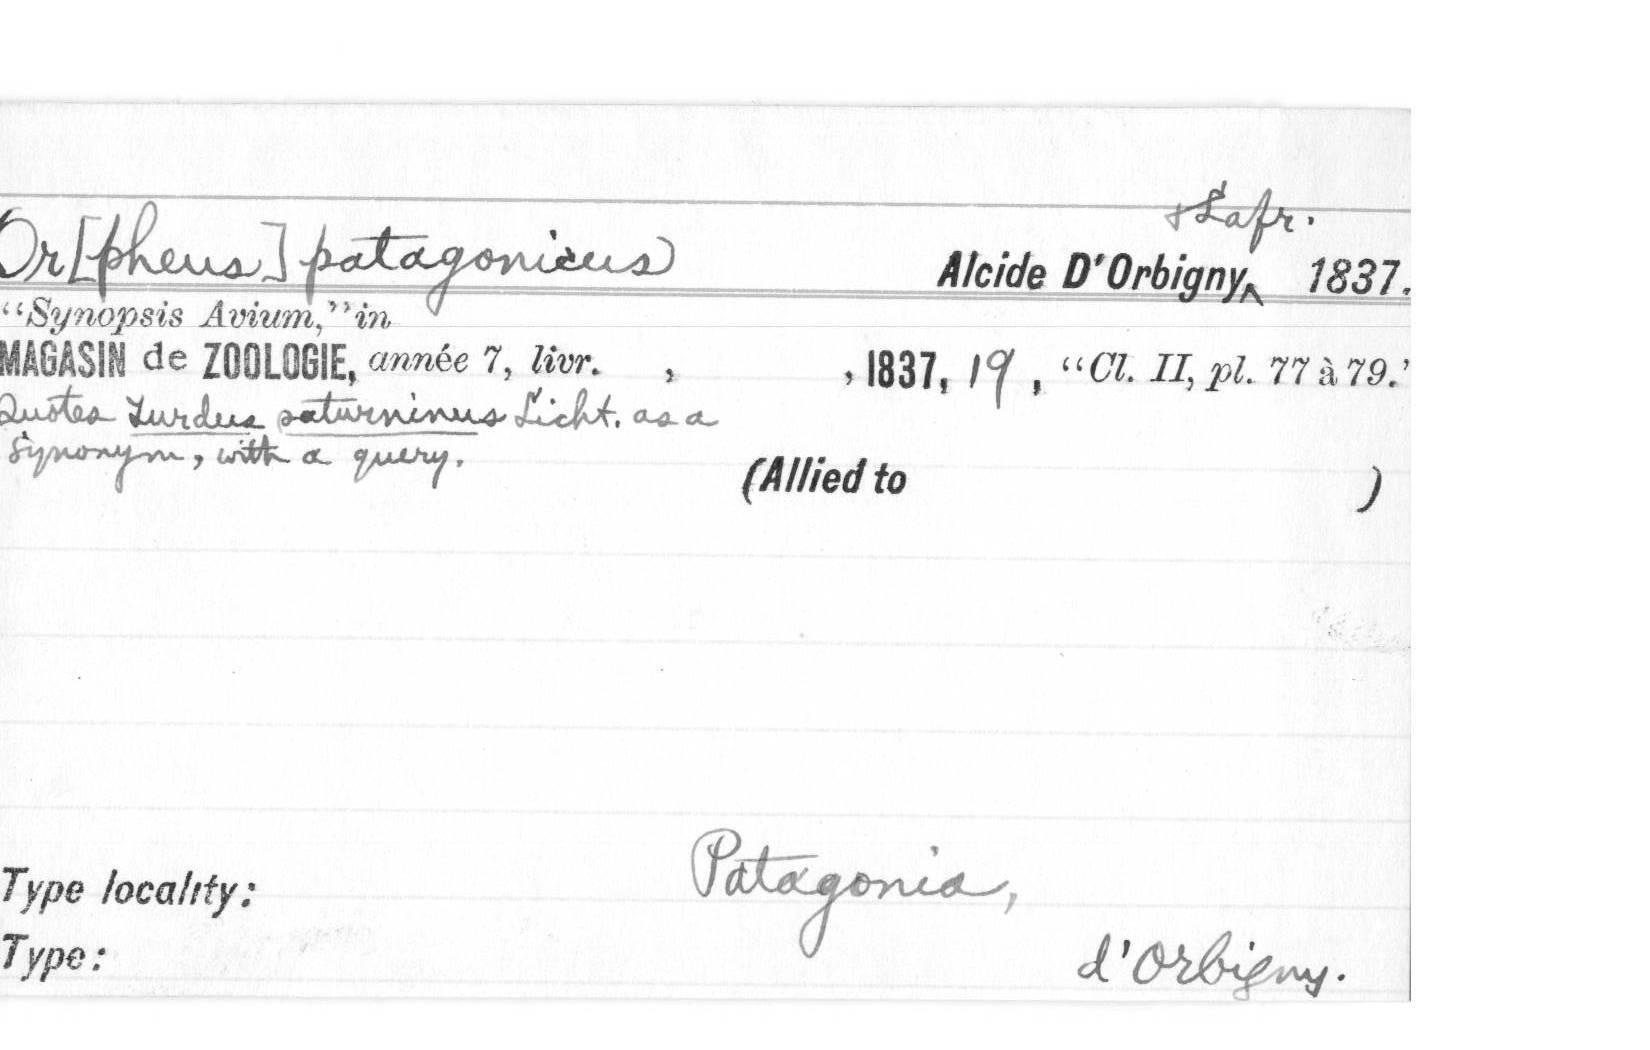 & Lafr.
Or[pheus] patagonicus Alcide D'Orbigny‸ 1837.
"Synopsis Avium," in
MAGASIN de ZOOLOGIE, année 7, livr. , , 1837, 19, "Cl. II, pl. 77 à 79.'
Quotes Turdus saturninus Licht. as a
synonym, with a query.
(Allied to )
Type locality: Patagonia,
Type: d'Orbigny.